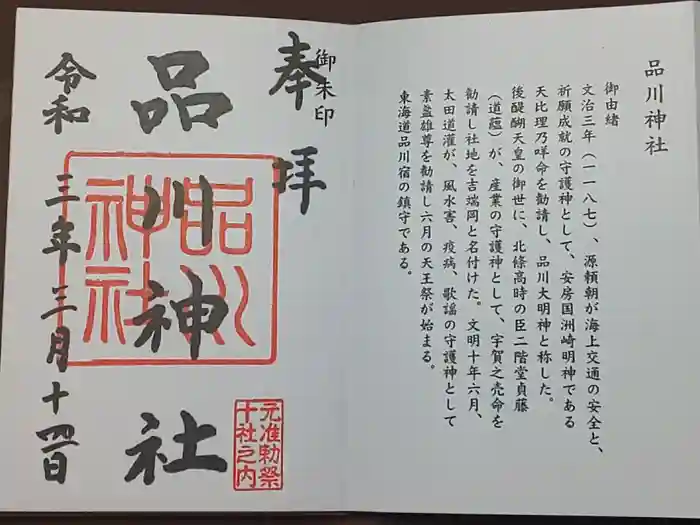 品川神社
御由緒
文治三年（一一八七）、源頼朝が海上交通の安全と、
祈願成就の守護神として、安房国洲崎明神である
天比理乃咩命を勧請し、品川大明神と称した。
後醍醐天皇の御世に、北條高時の臣二階堂貞藤
（道蘊）が、産業の守護神として、宇賀之売命を
勧請し社地を吉端岡と名付けた。文明十年六月、
太田道灌が、風水害、疫病、歌謡の守護神として
素盞雄尊を勧請し六月の天王祭が始まる。
東海道品川宿の鎮守である。
御朱印
奉拝
品川神社
品川神社
元准勅祭
十社之内
令和三年三月十四日